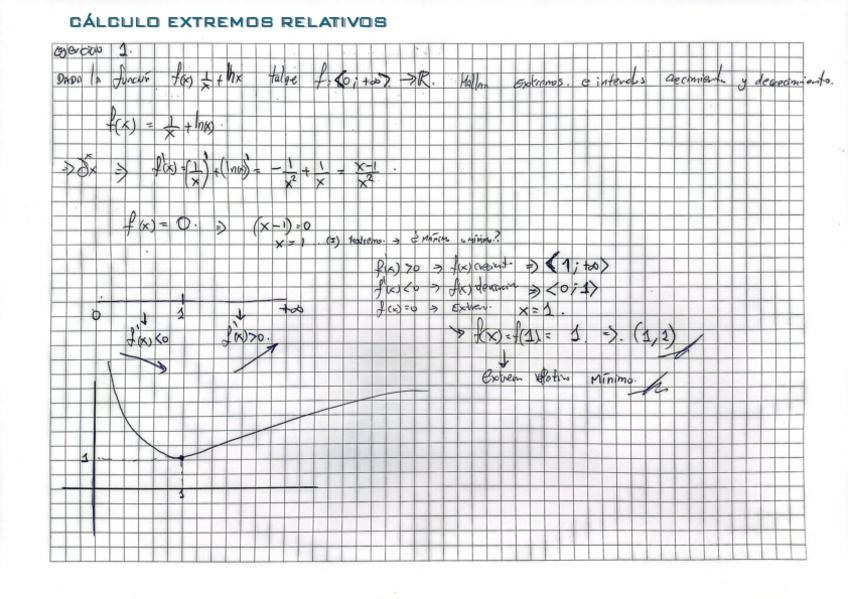 CÁLCULO EXTREMOS RELATIVOS
ejercicio 1.
Dado la función f(x) 1/x + lnx talque f: <0; +∞> → R. Hallar extremos. e intervalos crecimiento y decrecimiento.
f(x) = 1/x + ln(x).
⇒ ⇒ f'(x) = (1/x)' + (ln(x))' = -1/x² + 1/x = x-1/x² .
f'(x) = 0. ⇒ (x-1)=0
x=1 . extremo. → ¿ Máximo o mínimo?
f'(x) >0 → f(x) crecient. ⇒ <1; +∞>
f'(x) <0 → f(x) ⇒ <0; 1>
f'(x)=0 → Extrem. x=1.
→ f(x)=f(1)= 1. ⇒. (1,1)
↓
Extrem relativo Mínimo.
0 1 +∞
↓ ↓
f'(x)<0 f'(x)>0.
1
1